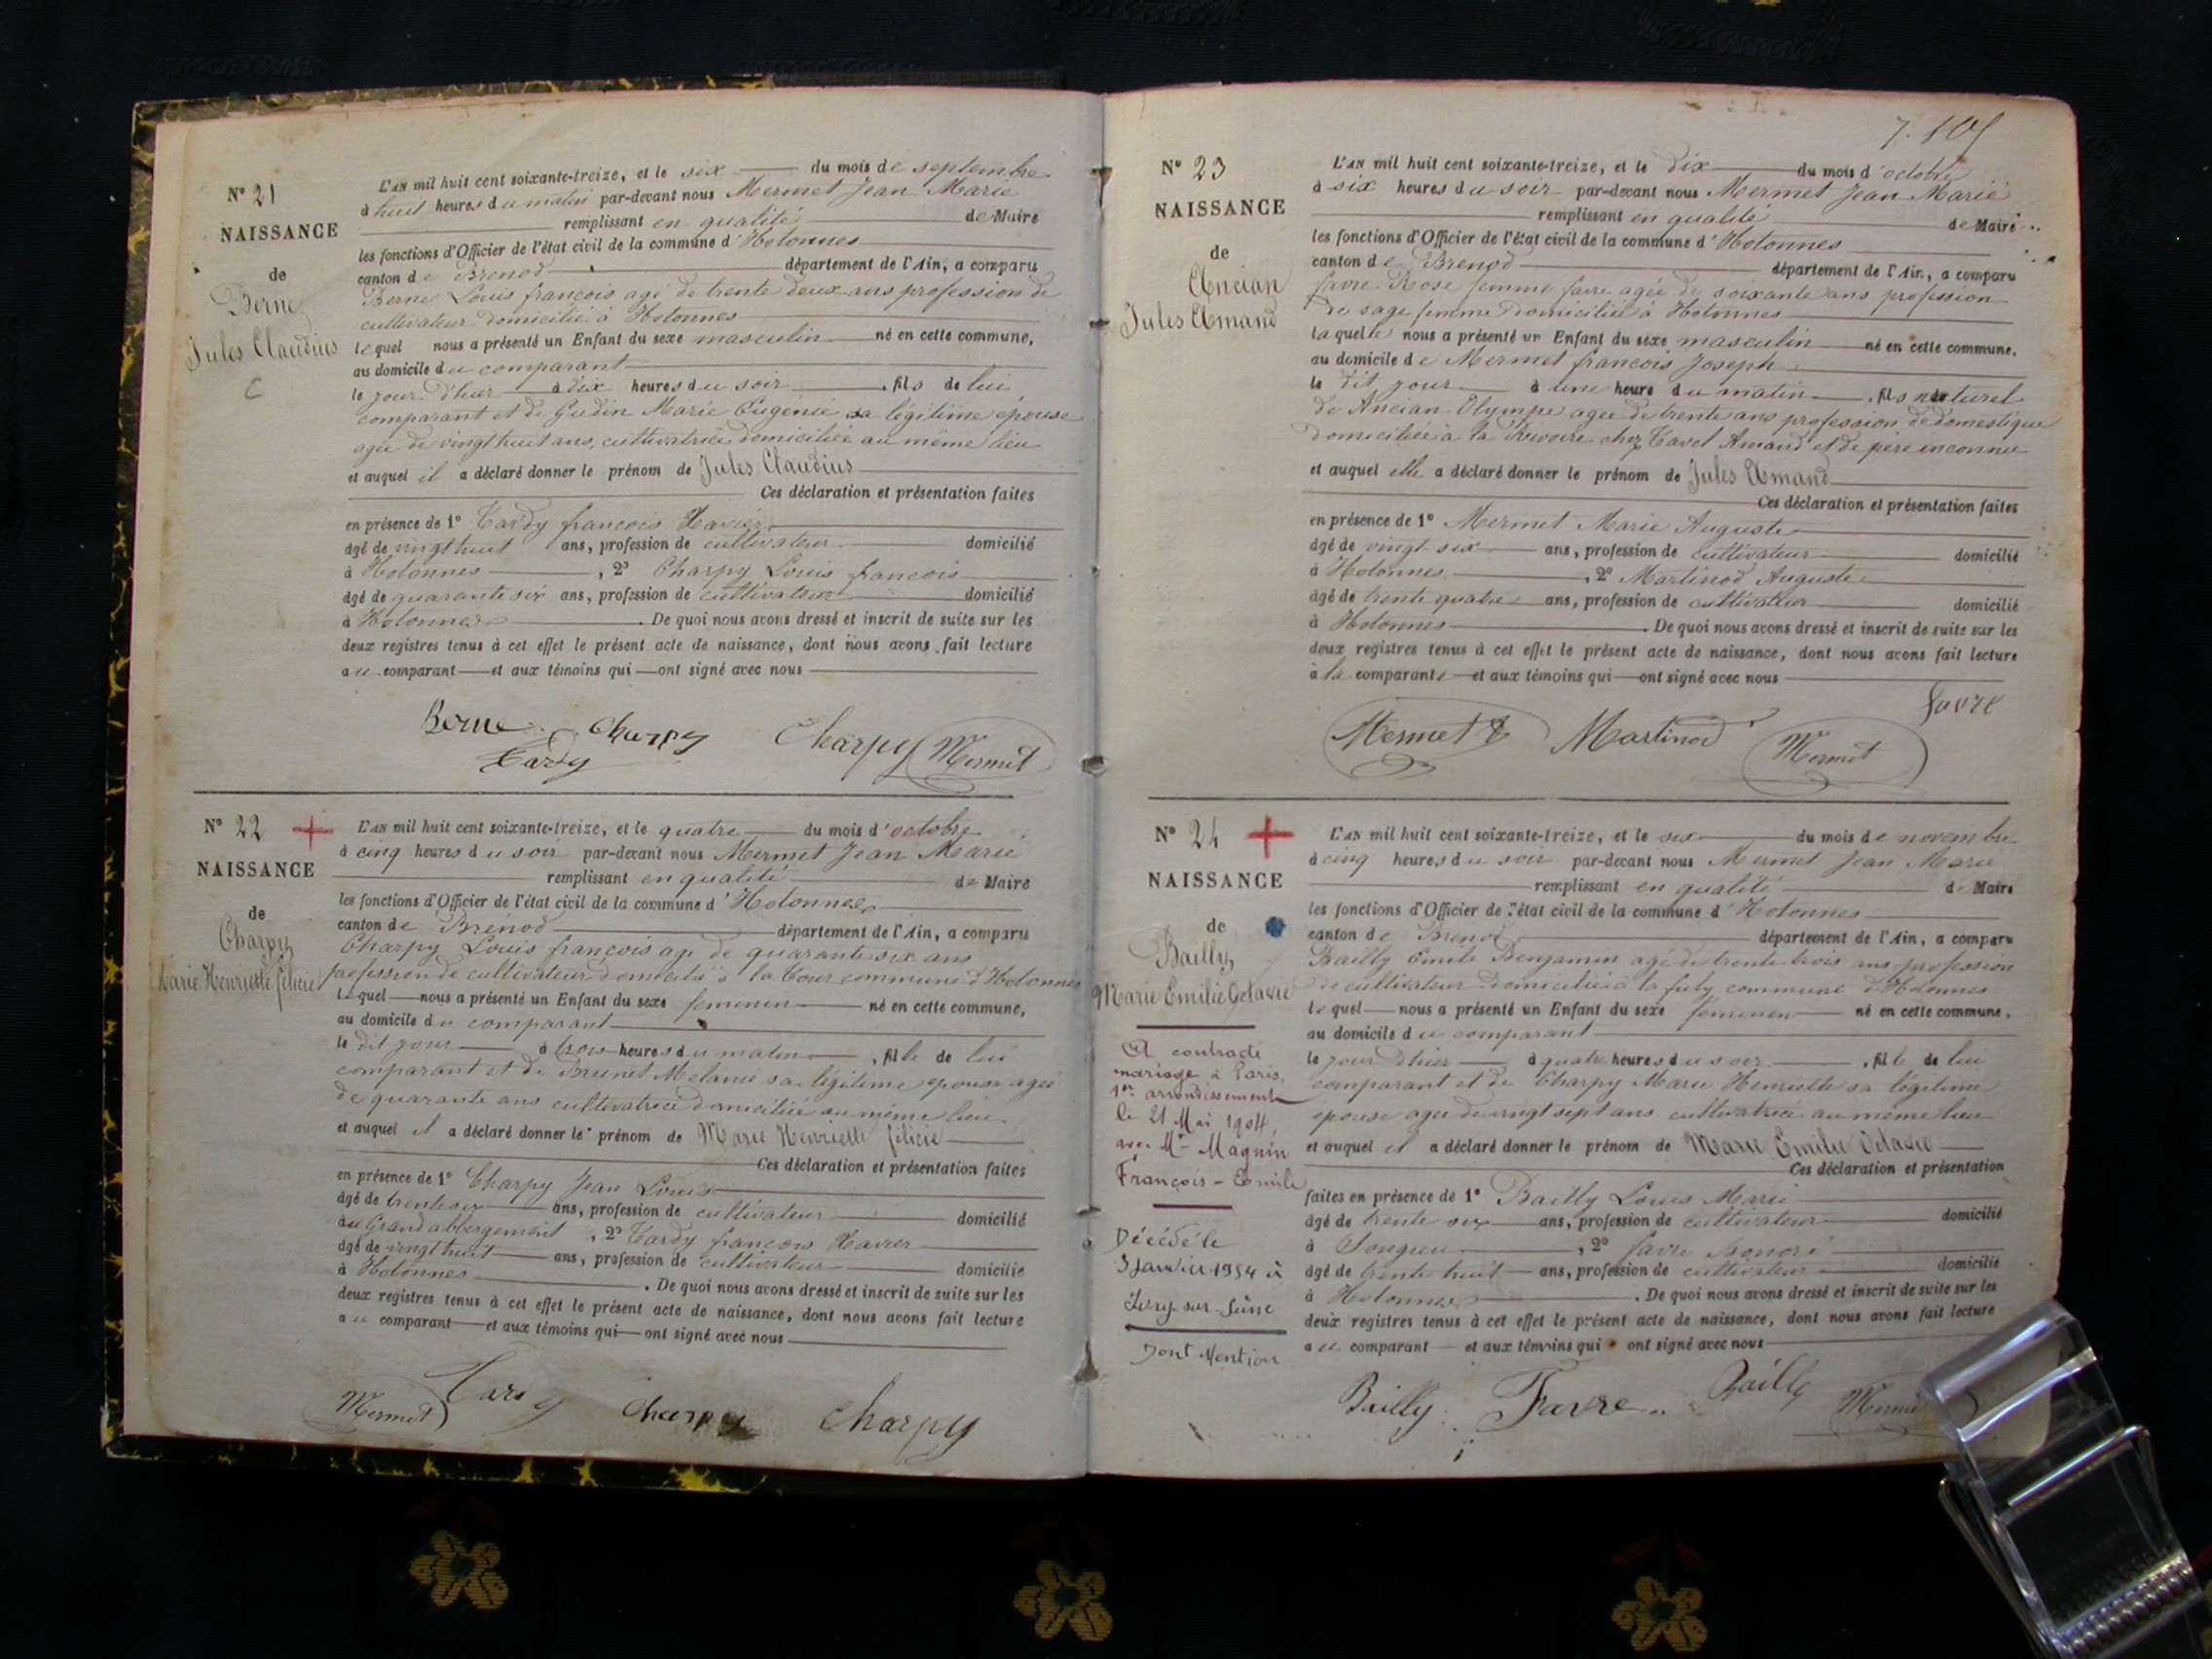 N° 21
NAISSANCE
de
Berne
Jules Claudius
L'AN mil huit cent soixante-treize, et le six du mois de septembre
à huit heures du matin par-devant nous Mermet Jean Marie
remplissant en qualité de Maire
les fonctions d'Officier de l'état civil de la commune d'Hotonnes
canton de Brenod département de l'Ain, a comparu
Berne Louis françois agé de trente deux ans profession de
cultivateur domicilié à Hotonnes
lequel nous a présenté un Enfant du sexe masculin né en cette commune,
au domicile du comparant
le jour d'hier à dix heures du soir , fils de lui
comparant et de Gudin Marie Eugénie sa légitime épouse
agée de vingt huit ans, cultivatrice domiciliée au même lieu
et auquel il a déclaré donner le prénom de Jules Claudius
Ces déclaration et présentation faites
en présence de 1° Tardy françois Xavier
âgé de vingt huit ans, profession de cultivateur domicilié
à Hotonnes , 2° Charpy Louis françois
âgé de quarante six ans, profession de cultivateur domicilié
à Hotonnes . De quoi nous avons dressé et inscrit de suite sur les
deux registres tenus à cet effet le présent acte de naissance, dont nous avons fait lecture
au comparant et aux témoins qui ont signé avec nous
Berne Charpy Charpy Mermet
Tardy
N° 22
NAISSANCE
de
Charpy
Marie Henriette félicie
L'AN mil huit cent soixante-treize, et le quatre du mois d'octobre
à cinq heures du soir par-devant nous Mermet Jean Marie
remplissant en qualité de Maire
les fonctions d'Officier de l'état civil de la commune d'Hotonnes
canton de Brénod département de l'Ain, a comparu
Charpy Louis françois agé de quarante six ans
profession de cultivateur domicilié à la Cour commune d'Hotonnes
lequel nous a présenté un Enfant du sexe femenin né en cette commune,
au domicile du comparant
le dit jour à trois heures du matin , fille de lui
comparant et de Brunet Mélanie sa légitime épouse agée
de quarante ans cultivatrice domiciliée au même lieu
et auquel il a déclaré donner le prénom de Marie Henriette félicie
Ces déclaration et présentation faites
en présence de 1° Charpy Jean Louis
âgé de trente six ans, profession de cultivateur domicilié
au Grand abbergement , 2° Tardy françois Xavier
âgé de vingt huit ans, profession de cultivateur domicilié
à Hotonnes . De quoi nous avons dressé et inscrit de suite sur les
deux registres tenus à cet effet le présent acte de naissance, dont nous avons fait lecture
au comparant et aux témoins qui ont signé avec nous
Mermet Tardy Charpy Charpy
N° 23
NAISSANCE
de
Ancian
Jules Amand
L'AN mil huit cent soixante-treize, et le dix du mois d'octobre
à six heures du soir par-devant nous Mermet Jean Marie
remplissant en qualité de Maire
les fonctions d'Officier de l'état civil de la commune d'Hotonnes
canton de Brenod département de l'Ain, a comparu
favre Rose femme favre agée de soixante ans profession
de sage femme domiciliée à Hotonnes
laquelle nous a présenté un Enfant du sexe masculin né en cette commune,
au domicile de Mermet francois Joseph
le dit jour à une heure du matin , fils naturel
de Ancian Olympe agée de trente ans profession de domestique
domiciliée à la Revoire chez Tavel Amand et de père inconnu
et auquel elle a déclaré donner le prénom de Jules Amand
Ces déclaration et présentation faites
en présence de 1° Mermet Marie Auguste
âgé de vingt-six ans, profession de cultivateur domicilié
à Hotonnes , 2° Martinod Auguste
âgé de trente quatre ans, profession de cultivateur domicilié
à Hotonnes . De quoi nous avons dressé et inscrit de suite sur les
deux registres tenus à cet effet le présent acte de naissance, dont nous avons fait lecture
à la comparante et aux témoins qui ont signé avec nous
favre
Mermet Martinod Mermet
N° 24
NAISSANCE
de
Bailly
Marie Emilie Octavie
A contracté
mariage à Paris,
1er arrondissement
le 21 Mai 1904,
avec Mr Magnin
François-Emile
Décédé le
3 Janvier 1954 à
Ivry-sur-Seine
Dont Mention
L'AN mil huit cent soixante-treize, et le six du mois de novembre
à cinq heures du soir par-devant nous Mermet Jean Marie
remplissant en qualité de Maire
les fonctions d'Officier de l'état civil de la commune d'Hotonnes
canton de Brenod département de l'Ain, a comparu
Bailly Emile Benjamin agé de trente trois ans profession
de cultivateur domicilié à la commune d'Hotonnes
lequel nous a présenté un Enfant du sexe femenin né en cette commune,
au domicile du comparant
le jour d'hier à quatre heures du soir , fille de lui
comparant et de Charpy Marie Henriette sa légitime
épouse agée de vingt sept ans cultivatrice au même lieu
et auquel il a déclaré donner le prénom de Marie Emilie Octavie
Ces déclaration et présentation
faites en présence de 1° Bailly Louis Marie
âgé de trente six ans, profession de cultivateur domicilié
à Songieu , 2° favre honoré
âgé de trente huit ans, profession de cultivateur domicilié
à Hotonnes . De quoi nous avons dressé et inscrit de suite sur les
deux registres tenus à cet effet le présent acte de naissance, dont nous avons fait lecture
au comparant et aux témoins qui ont signé avec nous
Bailly Favre Bailly Mermet